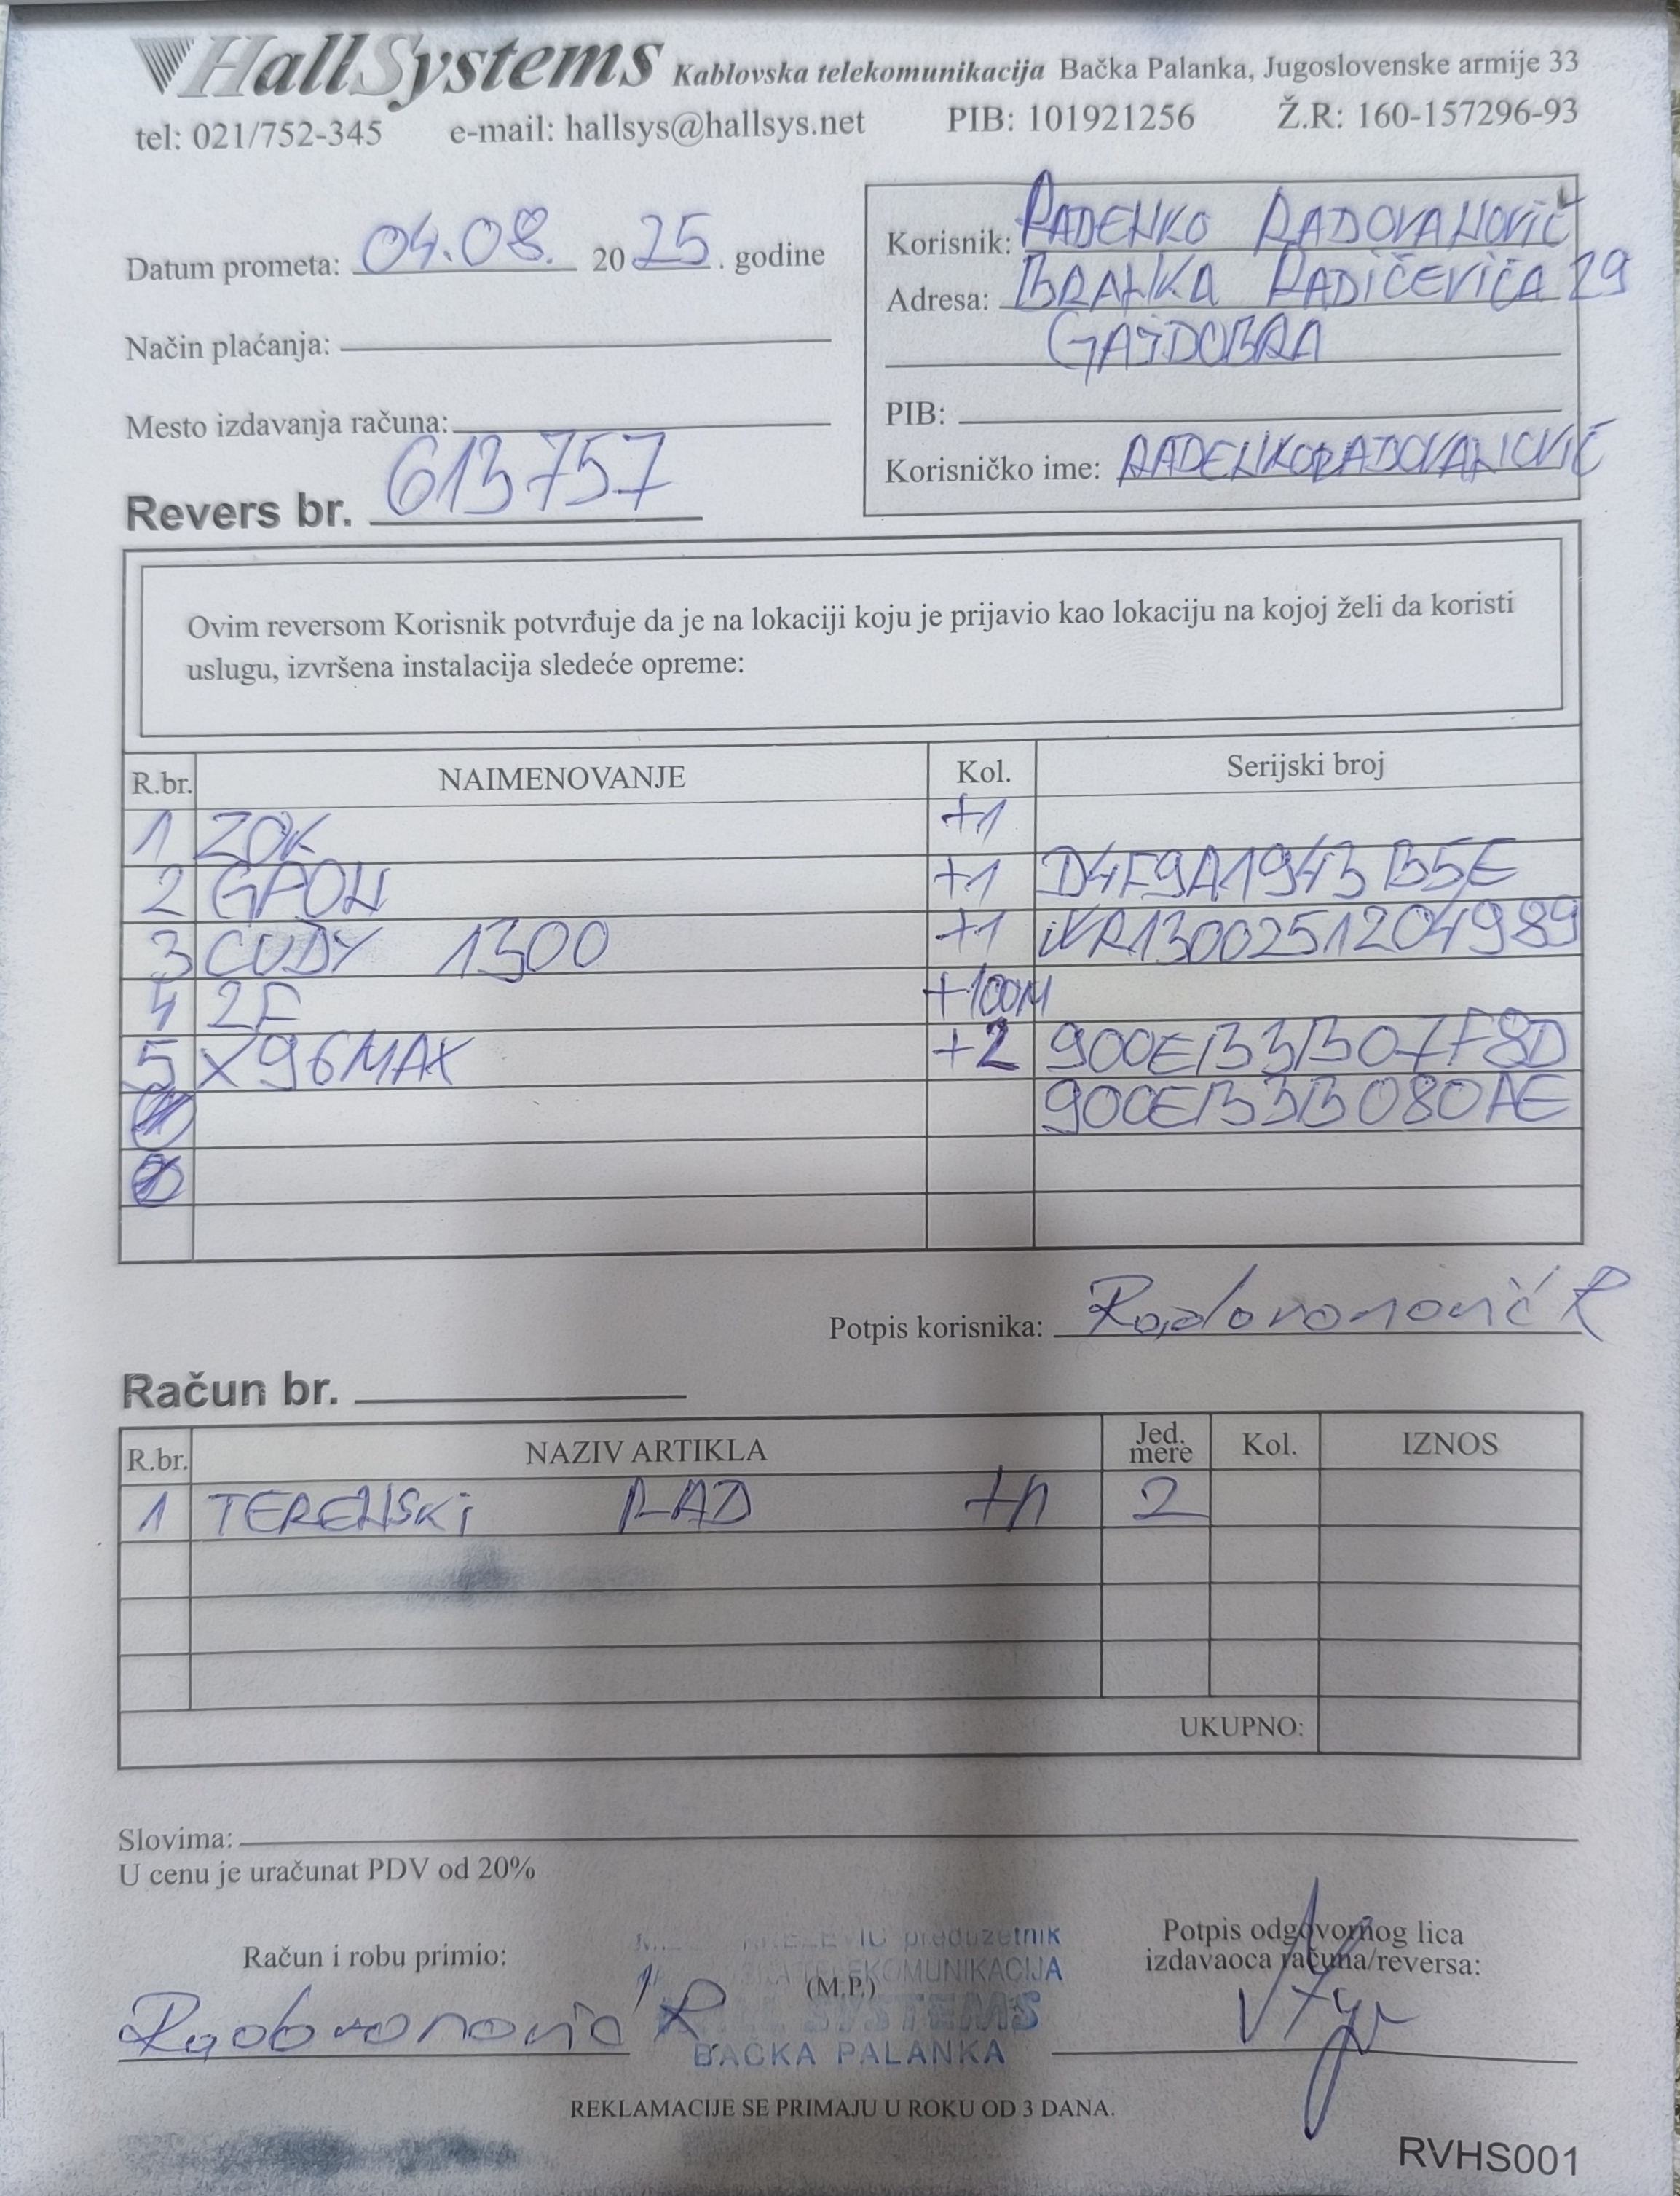 HallSystems Kablovska telekomunikacija Bačka Palanka, Jugoslovenske armije 33
tel: 021/752-345 e-mail: hallsys@hallsys.net PIB: 101921256 Ž.R: 160-157296-93
Datum prometa: 04.08. 2025. godine
Način plaćanja:
Mesto izdavanja računa:
Revers br. 613757
Korisnik: RADENKO RADOVANOVIĆ
Adresa: BRANKA RADIČEVIĆA 29
GAJDOBRA
PIB:
Korisničko ime: RADENKORADOVANOVIĆ
Ovim reversom Korisnik potvrđuje da je na lokaciji koju je prijavio kao lokaciju na kojoj želi da koristi
uslugu, izvršena instalacija sledeće opreme:
R.br. NAIMENOVANJE Kol. Serijski broj
1 ZOK +1
2 GPON +1 D4F9A1943B5E
3 CUDY 1300 +1 WR1300251204989
4 2F +100M
5 X96MAX +2 900EB3B07F8D
900EB3B080AE
Potpis korisnika: Radovanović R
Račun br.
R.br. NAZIV ARTIKLA Jed. mere Kol. IZNOS
1 TERENSKI RAD +1 2
UKUPNO:
Slovima:
U cenu je uračunat PDV od 20%
Račun i robu primio:
Radovanović R
preduzetnik
TELEKOMUNIKACIJA
(M.P.)
SYSTEMS
BAČKA PALANKA
Potpis odgovornog lica
izdavaoca računa/reversa:
REKLAMACIJE SE PRIMAJU U ROKU OD 3 DANA.
RVHS001